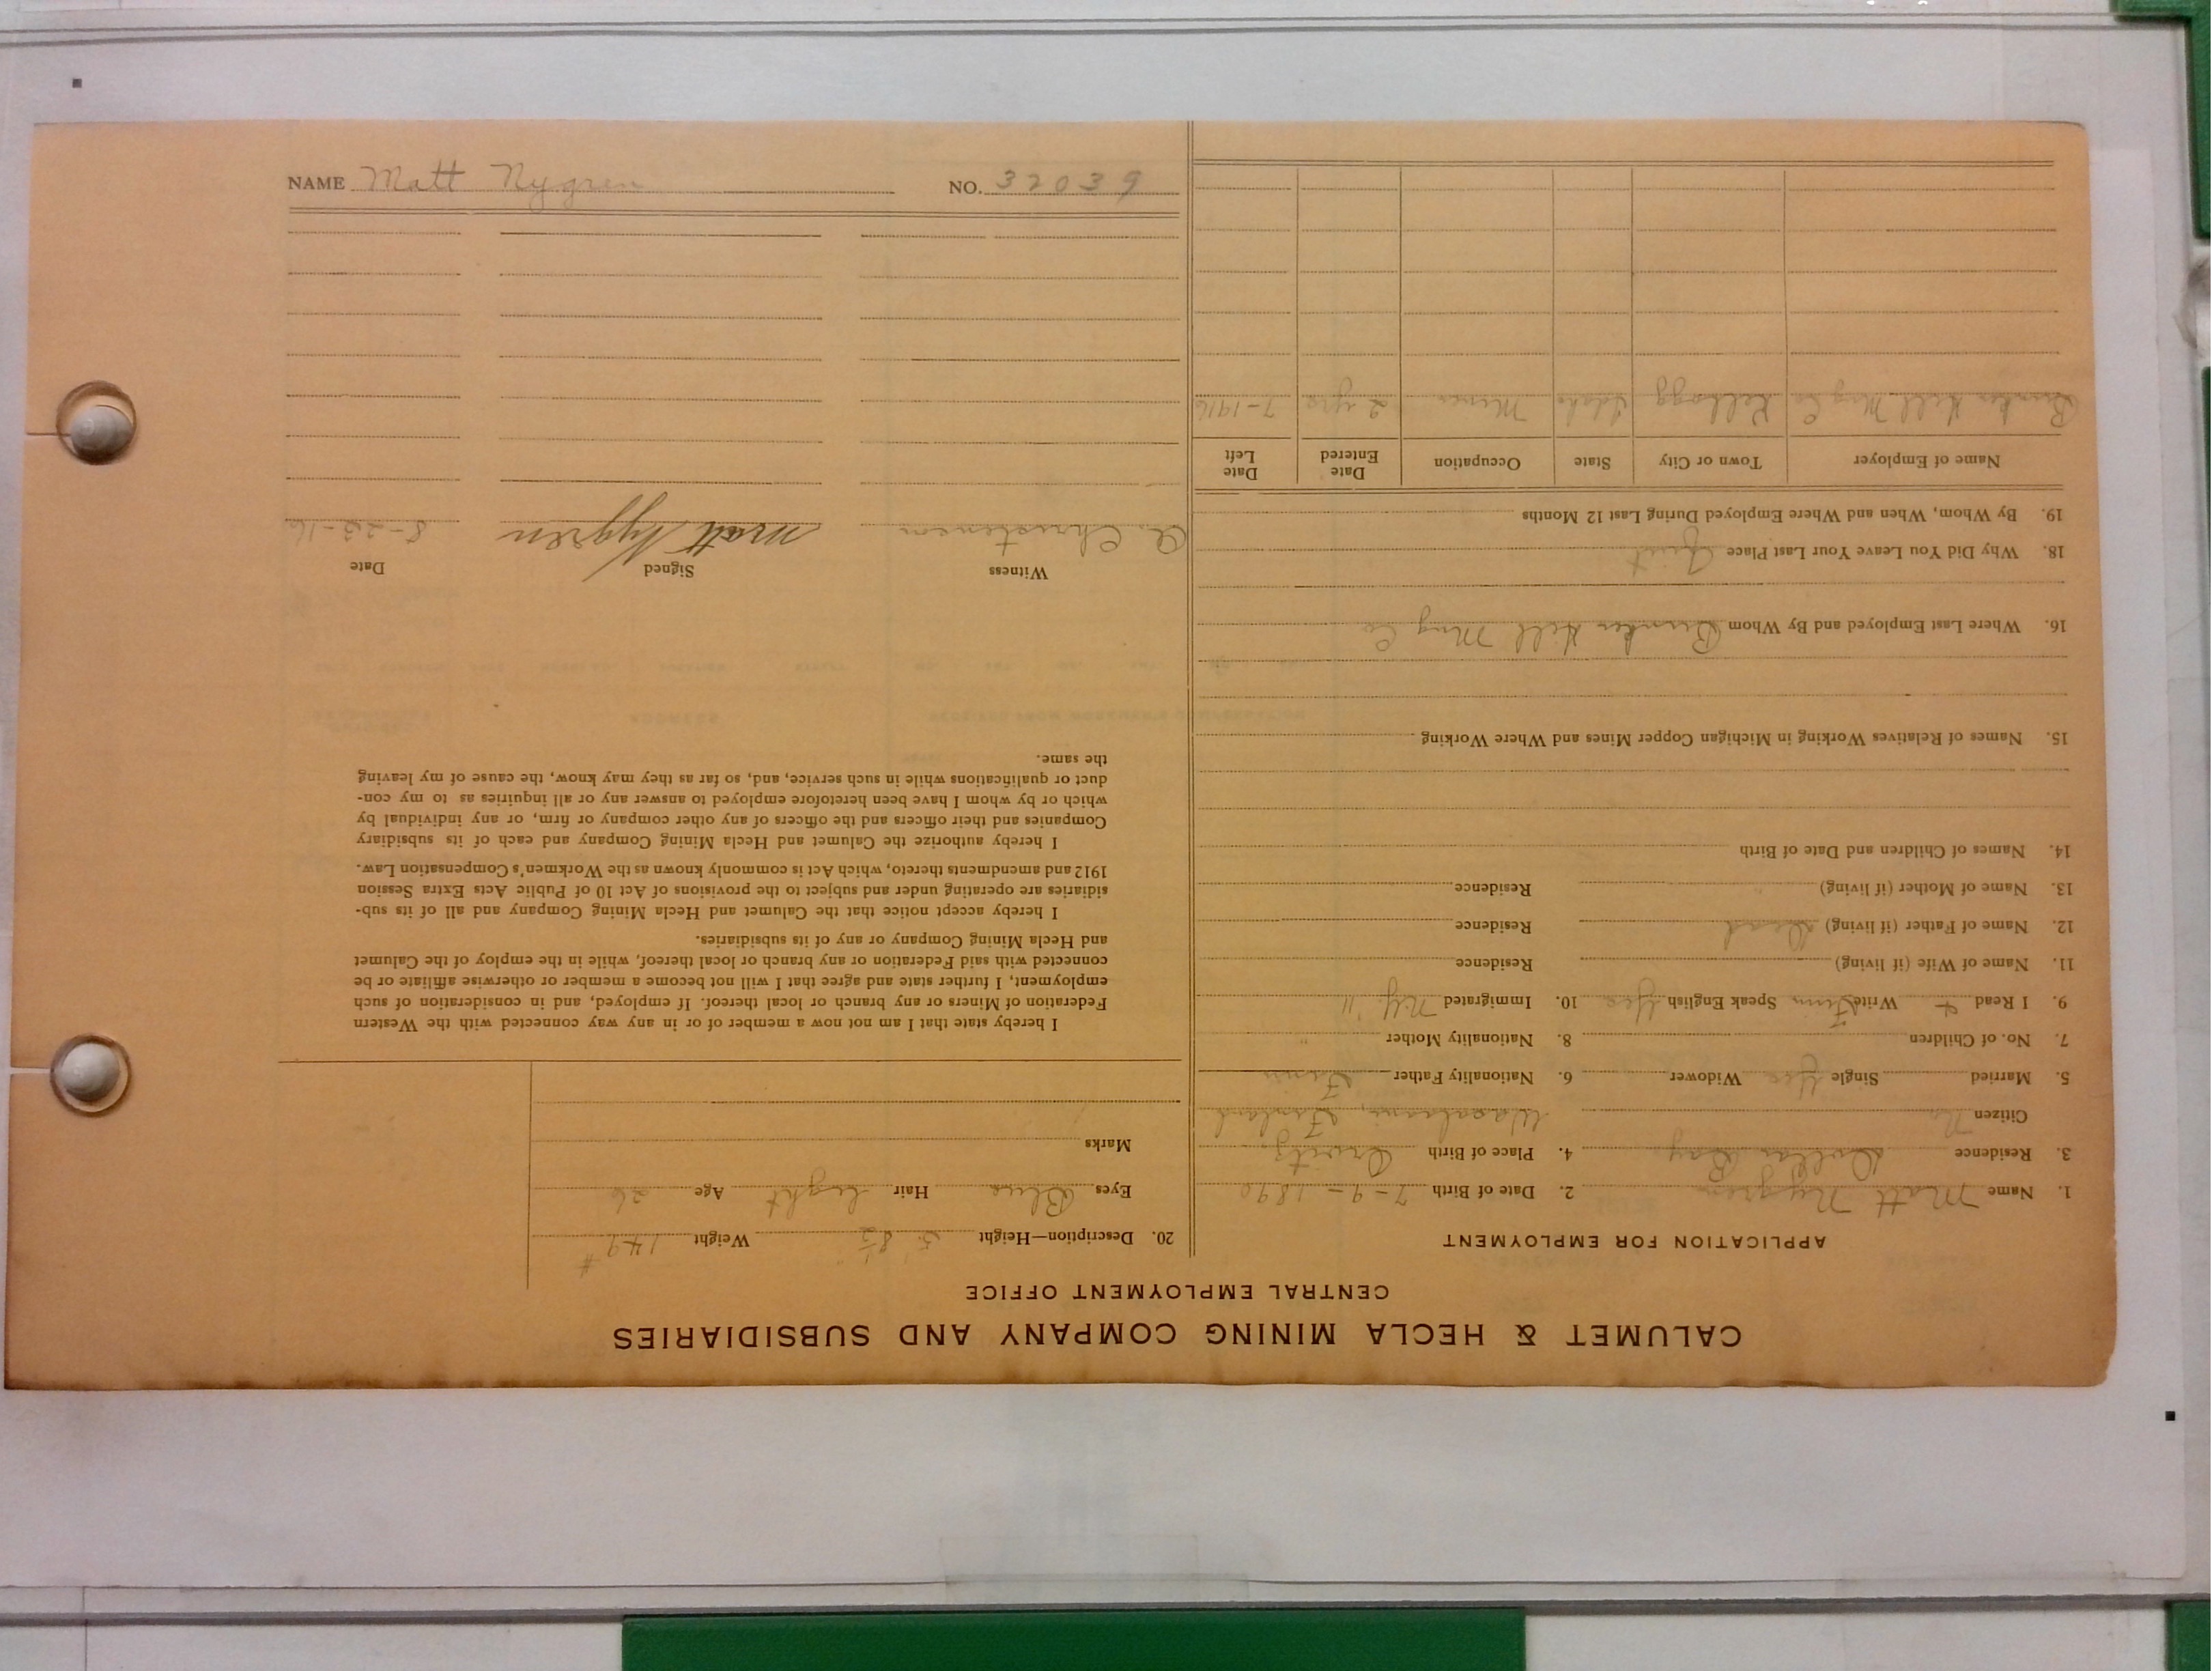 CALUMET & HECLA MINING COMPANY AND SUBSIDIARIES
CENTRAL EMPLOYMENT OFFICE
APPLICATION FOR EMPLOYMENT
1. Name Matt Nygren 2. Date of Birth 7-9-1890
3. Residence Dollar Bay 4. Place of Birth
Citizen No Finland
5. Married Single Yes Widower 6. Nationality Father Finn
7. No. of Children 8. Nationality Mother "
9. I Read & Write Finn Speak English Yes 10. Immigrated N.Y. 11
11. Name of Wife (if living) Residence
12. Name of Father (if living) Dead Residence
13. Name of Mother (if living) Residence
14. Names of Children and Date of Birth
15. Names of Relatives Working in Michigan Copper Mines and Where Working
16. Where Last Employed and By Whom Bunker Hill Mng Co
18. Why Did You Leave Your Last Place Quit
19. By Whom, When and Where Employed During Last 12 Months
Name of Employer Town or City State Occupation Date Entered Date Left
Bunker Hill Mng Co Kellogg Idaho Miner 2 yrs 7-1916
20. Description—Height 5' 8½" Weight 149 #
Eyes Blue Hair Light Age 26
Marks
I hereby state that I am not now a member of or in any way connected with the Western
Federation of Miners or any branch or local thereof. If employed, and in consideration of such
employment, I further state and agree that I will not become a member or otherwise affiliate or be
connected with said Federation or any branch or local thereof, while in the employ of the Calumet
and Hecla Mining Company or any of its subsidiaries.
I hereby accept notice that the Calumet and Hecla Mining Company and all of its sub-
sidiaries are operating under and subject to the provisions of Act 10 of Public Acts Extra Session
1912 and amendments thereto, which Act is commonly known as the Workmen's Compensation Law.
I hereby authorize the Calumet and Hecla Mining Company and each of its subsidiary
Companies and their officers and the officers of any other company or firm, or any individual by
which or by whom I have been heretofore employed to answer any or all inquiries as to my con-
duct or qualifications while in such service, and, so far as they may know, the cause of my leaving
the same.
Witness Signed Date
A. Christensen Matt Nygren 8-23-16
NAME Matt Nygren NO. 32039